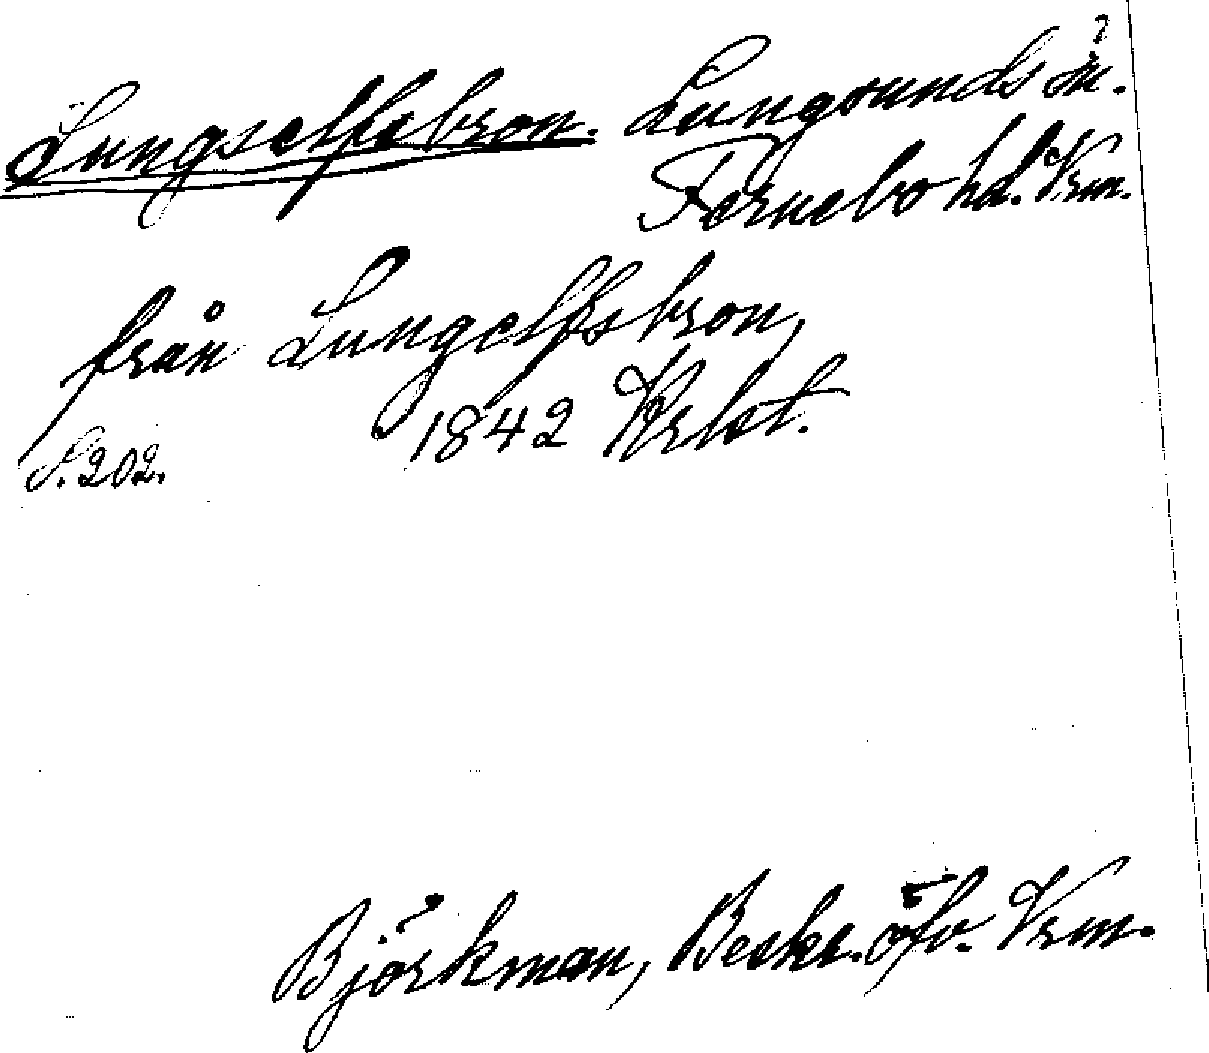 Lungselfsbron. Lungsunds sn. ?
Fernebo hd. Vrm.
från Lungelfsbron,
1842 Krlst.
S. 202.
Björkman, Beskr. öfv. Vrm.